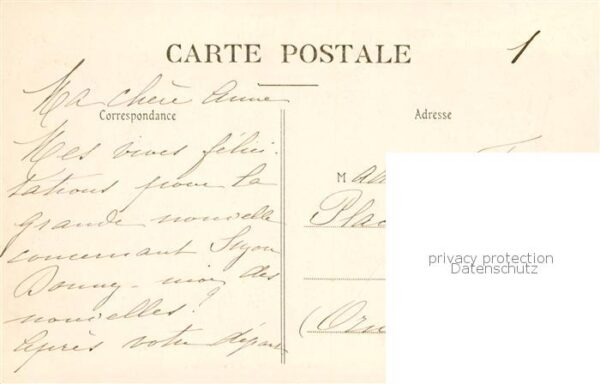 CARTE POSTALE
1
Ma chère Anne
Correspondance
Mes vives félici-
tations pour la
grande nouvelle
concernant Suzon
Donne-moi des
nouvelles!
Après votre départ
Adresse
M
Plac
(Orn
privacy protection
Datenschutz